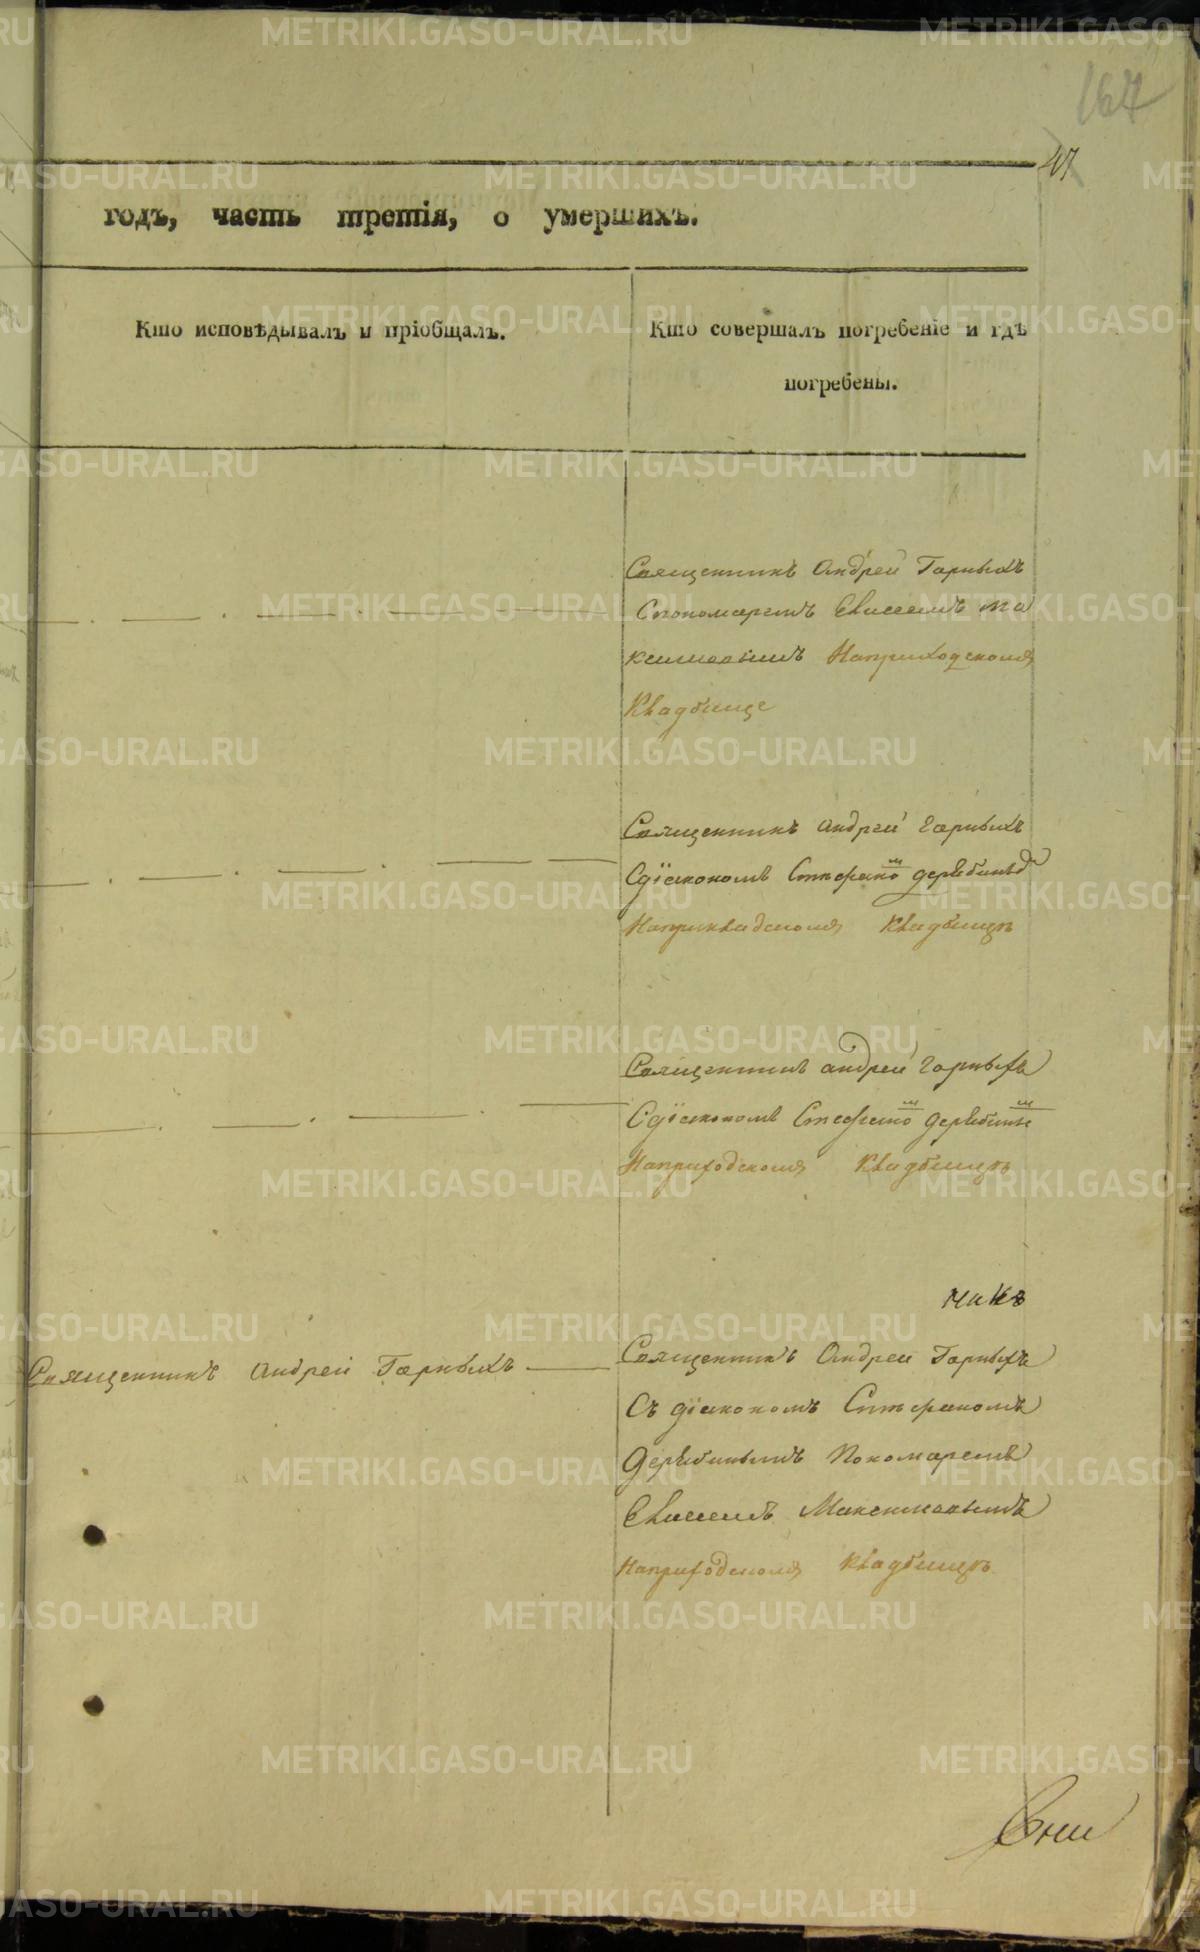 167
47
годъ, часть третія, о умершихъ.
Кто исповѣдывалъ и пріобщалъ.
Кто совершалъ погребеніе и гдѣ
погребены.
Священникъ Андрей Горныхъ
Спономаремъ Елисеемъ Ма
ксимовымъ Наприходскомъ
Кладбище
Священникъ Андрей Горныхъ
Сдіакономъ Стефано м Дерябинымъ
Наприхладскомъ Кладбищѣ
Священникъ Андрей Горныхъ
Сдіакономъ Стефано м Дерябины м
Наприходскомъ Кладбищѣ
никъ
Священникъ Андрей Горныхъ
Священникъ Андрей Горныхъ
Съ діакономъ Стефаномъ
Дерябинымъ Пономаремъ
Елисеемъ Максимовымъ
Наприходскомъ Кладбищѣ
METRIKI.GASO-URAL.RU